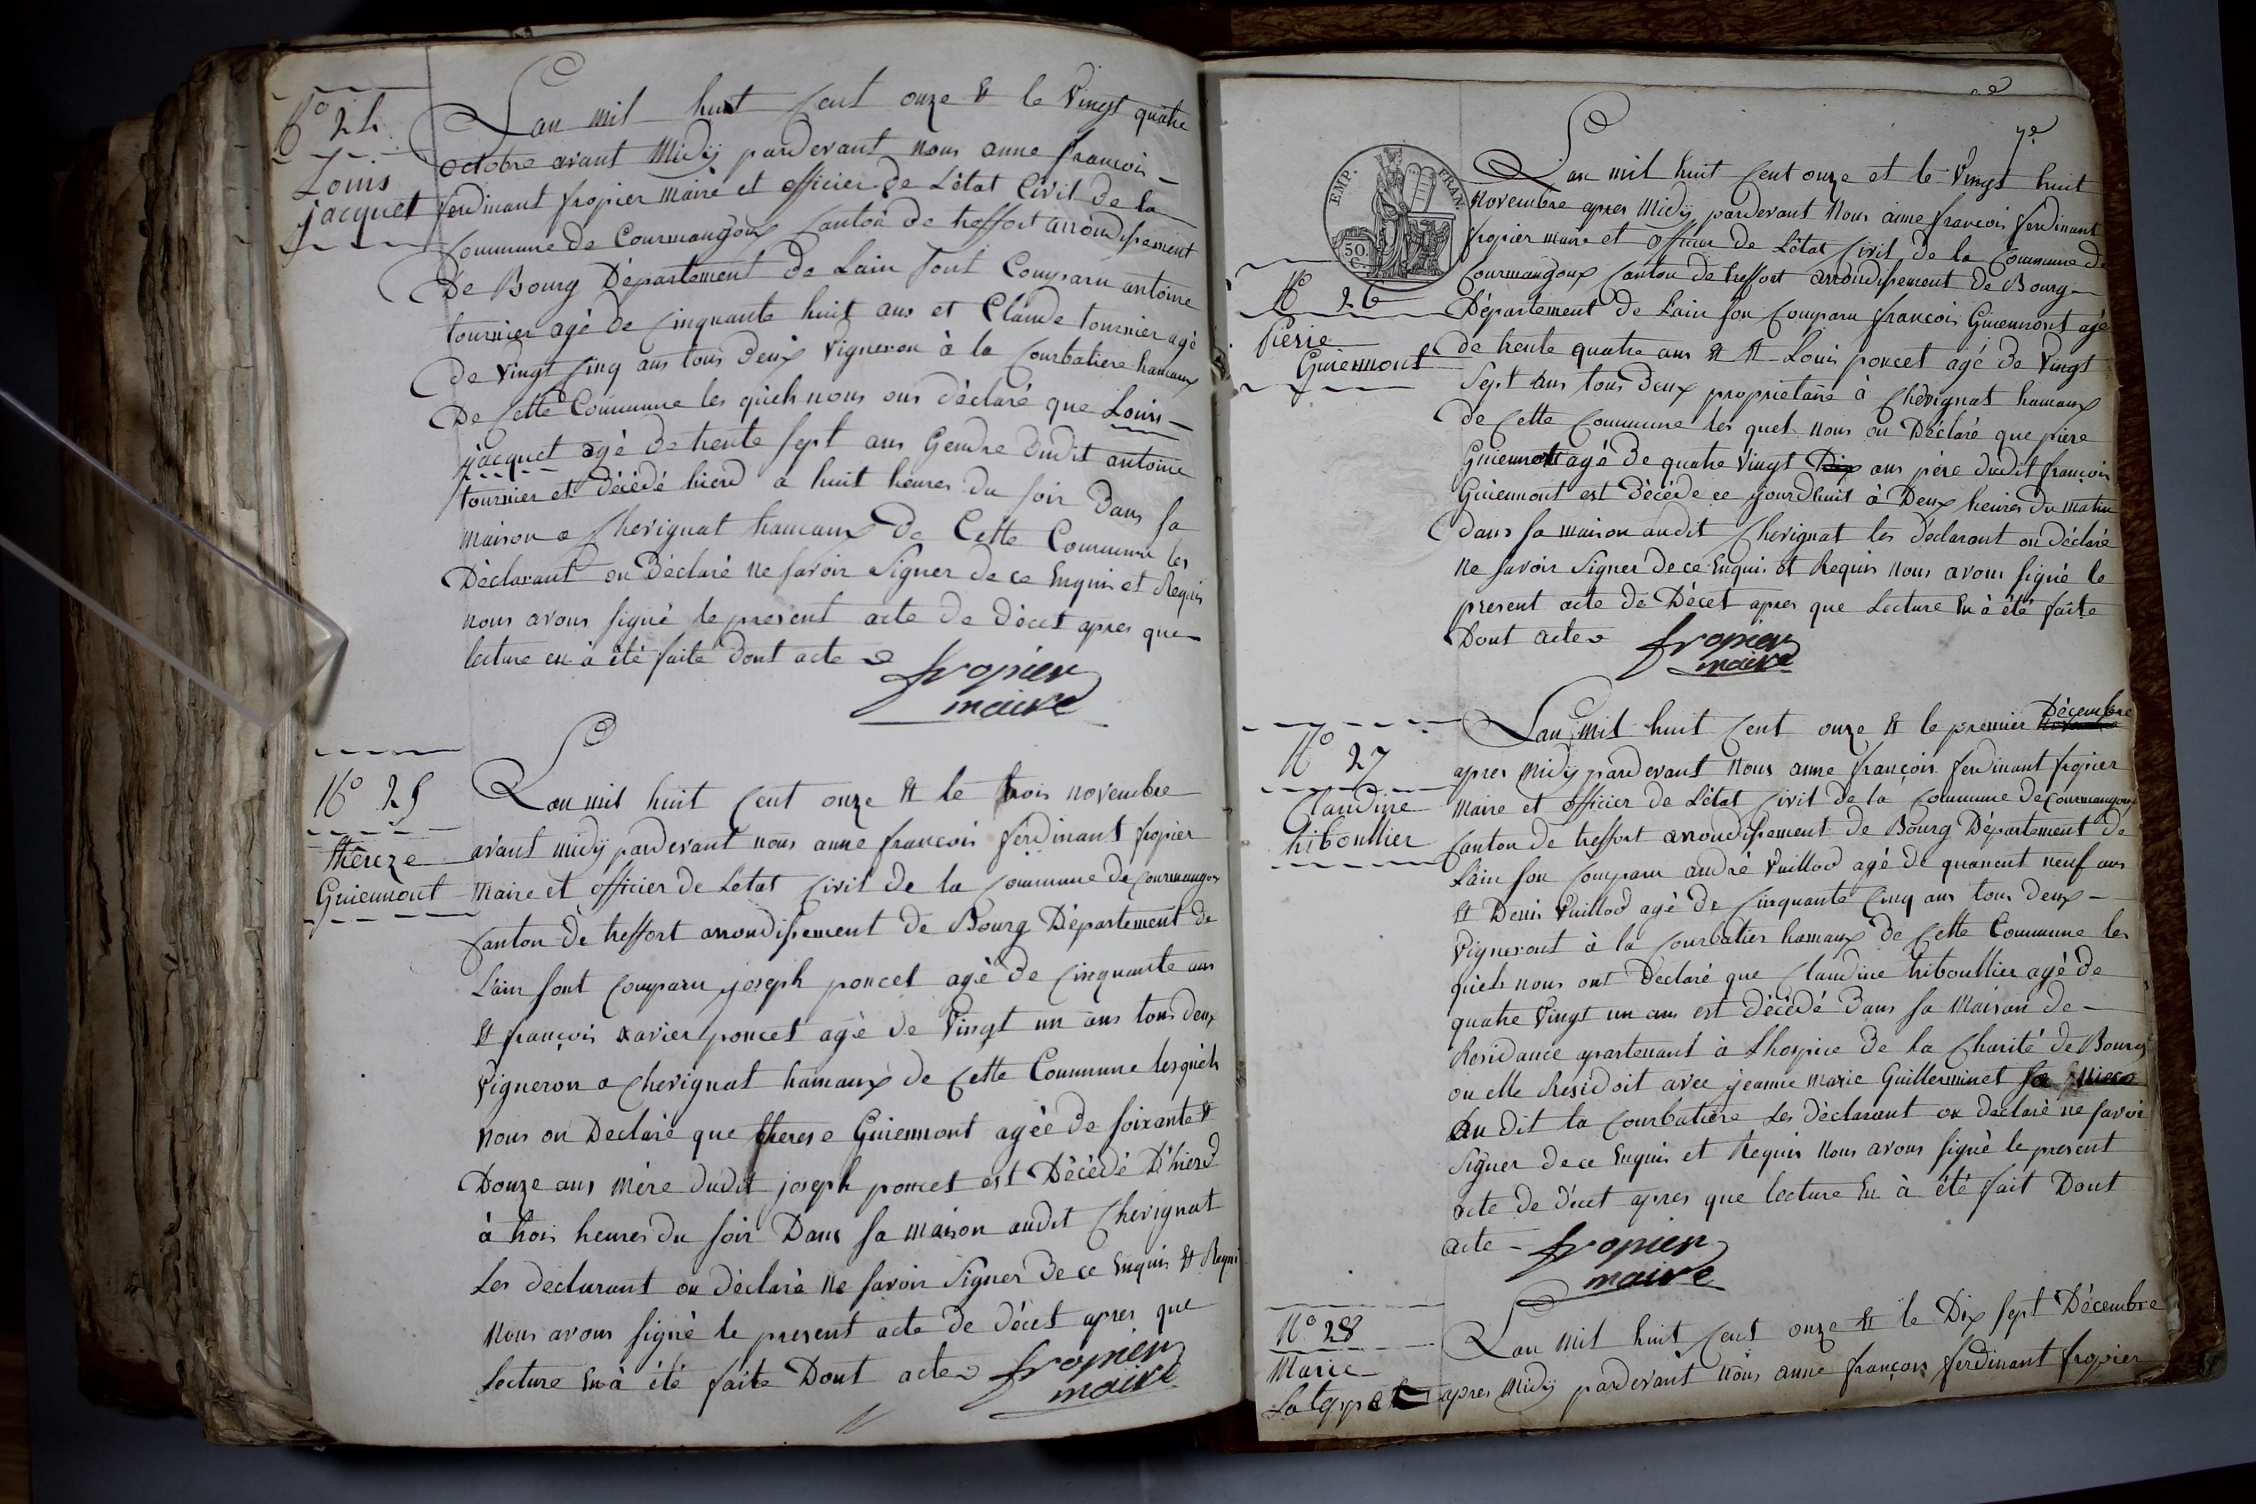 N° 24
Louis
jacquet
Lan mil huit Cent onze et le Vingt quatre
octobre avant Midÿ pardevant nous anne françois
ferdinant fropier maire et officier de L'état Civil de la
Commune de Courmangoux Canton de treffort arrondisement
De Bourg Département de Lain sont Comparu antoine
tournier agé de Cinquante huit ans et Claude tournier agé
de Vingt Cinq ans tous deux Vigneron à la Courbatiere hamaux
De Cette Commune les quels nous ons déclaré que Louis
jacquet agé de trente sept ans Gendre dudit antoine
tournier et décédé hierd a huit heures du soir Dans sa
maison a Chevignat hamaux De Cette Commune les
Déclarant on Déclaré ne savoir Signer de ce Enquis et Requis
nous avons signé le present acte de décet apres que
lecture en a été faite dont acte
fropier
maire
N° 25
thèreze
Guiennont
Lan mil huit Cent onze et le trois novembre
avant midÿ pardevant nous anne françois ferdinant fropier
Maire et officier de Letat Civil de la Commune de Courmangoux
Canton de treffort arrondisement de Bourg Département de
Lain sont Comparu joseph poncet agé de Cinquante ans
et françois xavier poncet agé de Vingt un ans tous deux
Vigneron a Chevignat hamaux de Cette Commune lesquels
nous on Declaré que therese Guiennont agée de soixante et
Douze ans mére dudit joseph poncet est Décédé D'hierd
à trois heures du soir Dans sa maison audit Chevignat
Les declarant on déclaré ne savoir Signer De ce Enquis et Requi
nous avons signé le present acte de décet apres que
Lecture En à été faite Dont acte
fropier
maire
7e
EMP. FRAN.
50
C.
N° 26
Piérre
Guiennont
Lan mil huit Cent onze et le Vingt huit
novembre apres Midÿ pardevant Nous anne francois ferdinant
fropier maire et officier de L'état Civil de la Commune de
Courmangoux Canton de treffort arrondisement de Bourg
Département de Lain son Comparu françois Guiennont agé
de trente quatre ans et et Louis poncet agé de Vingt
Sept ans tous Deux proprietaire à Chevignat hamaux
de Cette Commune les quel nous on Déclaré que piere
Guiennont agé de quatre Vingt Dix ans pére dudit françois
Guiennont est Décéde ce jourdhuit à Deux heures du matin
dans sa maison audit Chevignat les déclarant on déclaré
ne savoir Signer de ce Enquis et Requis nous avons signé le
present acte de Décet apres que Lecture En à été faite
Dont acte
fropier
maire
N° 27
Claudine
tiboullier
Lan mil huit Cent onze et le premier Décembre
apres Midÿ pardevant Nous anne françois ferdinant fropier
Maire et officier de L'état Civil de la Commune de Courmangoux
Canton de treffort arrondisement de Bourg Département de
Lain son Comparu andré Vuillod agé de quarent neuf ans
et Denis Vuillod agé de Cinquante Cinq ans tous deux
Vigneront à la Courbatier hamaux de Cette Commune les
quels nous ont Declaré que Claudine triboullier agé de
quatre Vingt un ans est décédé Dans sa Maison de
Residance apartenant à Lhospice de la Charité de Bourg
ou elle Residoit avec jeanne marie Guilleminet sa Niece
Au dit la Courbatière Les déclarant on declaré ne savoir
Signer de ce Enquis et Requis nous avons signé le present
acte de décet apres que lecture En à été fait Dont
acte
fropier
maire
N° 28
Marie
Lan mil huit Cent onze et le Dix sept Décembre
apres Midÿ pardevant nous anne françois ferdinant fropier